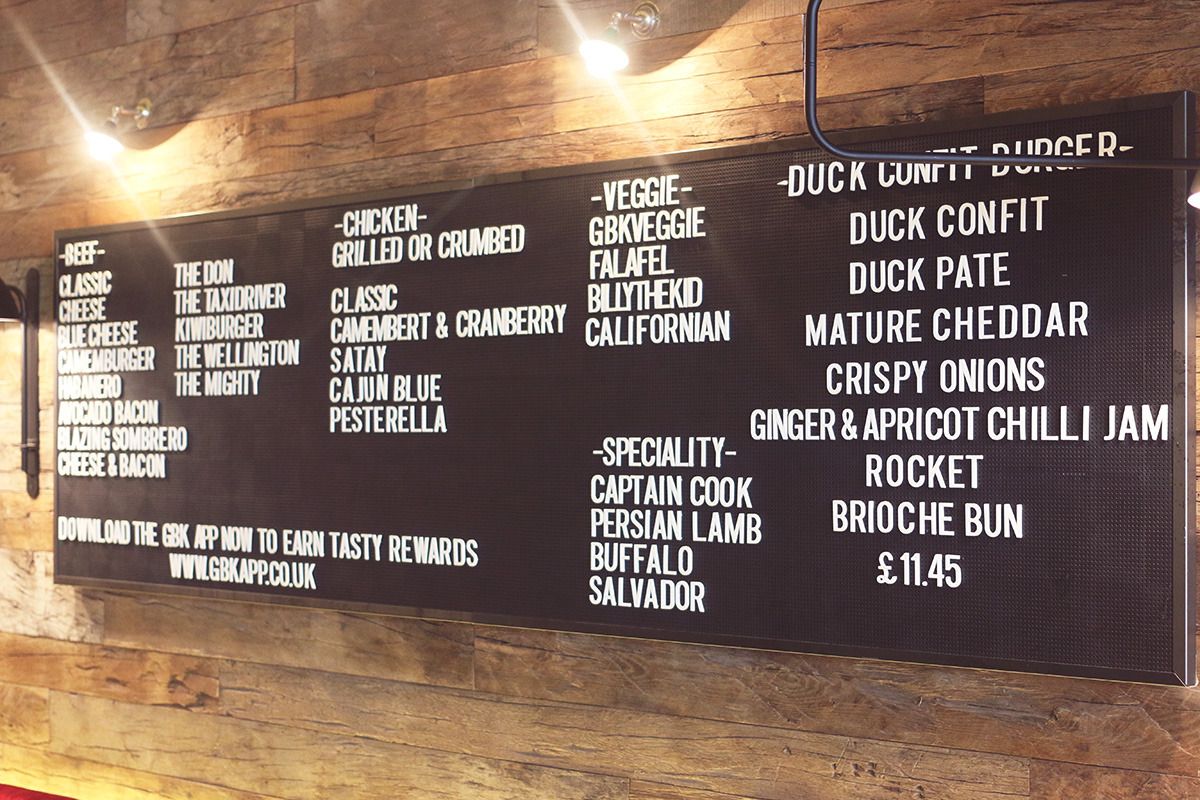 -BEEF-
CLASSIC
CHEESE
BLUE CHEESE
CAMEMBURGER
HABANERO
AVOCADO BACON
BLAZING SOMBRERO
CHEESE & BACON
THE DON
THE TAXIDRIVER
KIWIBURGER
THE WELLINGTON
THE MIGHTY
DOWNLOAD THE GBK APP NOW TO EARN TASTY REWARDS
WWW.GBKAPP.CO.UK
-CHICKEN-
GRILLED OR CRUMBED
CLASSIC
CAMEMBERT & CRANBERRY
SATAY
CAJUN BLUE
PESTERELLA
-VEGGIE-
GBKVEGGIE
FALAFEL
BILLYTHEKID
CALIFORNIAN
-SPECIALITY-
CAPTAIN COOK
PERSIAN LAMB
BUFFALO
SALVADOR
-DUCK CONFIT BURGER-
DUCK CONFIT
DUCK PATE
MATURE CHEDDAR
CRISPY ONIONS
GINGER & APRICOT CHILLI JAM
ROCKET
BRIOCHE BUN
£11.45